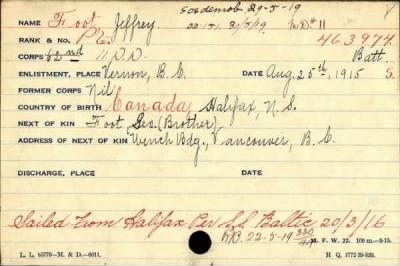 Sos demob 29-5-19
NAME Foot, Jeffrey. 31/5/19. MD# 11
RANK & NO. Pte. 463974
CORPS 62nd Batt.
ENLISTMENT, PLACE Vernon, B.C. DATE Aug. 25th, 1915 S
FORMER CORPS Nil
COUNTRY OF BIRTH Canada, Halifax, N.S.
NEXT OF KIN Foot Geo. (Brother)
ADDRESS OF NEXT OF KIN Winch Bdg., Vancouver, B.C.
DISCHARGE, PLACE DATE
Sailed from Halifax Per S.S. Baltic 20/3/16
22-5-19
M. F. W. 22. 100 m.-9-15.
L. L. 85779-M. & D.-6011. H Q. 1772-39-839.